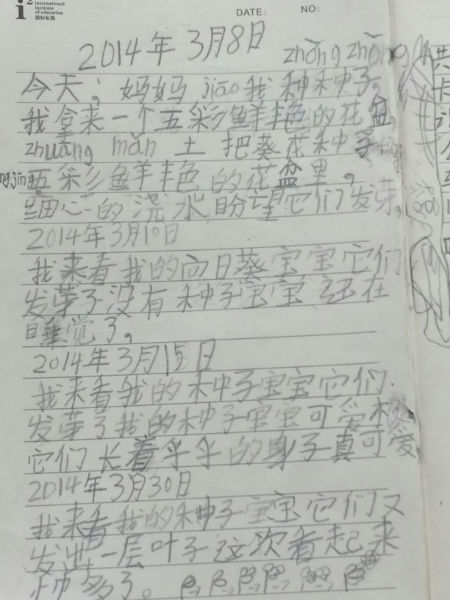 i² international institute of education 国际私塾
DATE: NO:
2014年3月8日
zhǒng zhǒng
今天，妈妈 jiāo 我种种子。
我拿来一个五彩鲜丰色的花盆
zhuāng mǎn 土 把葵花种子
五彩鲜丰色的花盆里。
细心的浇水盼望它们发芽。
2014年3月10日
我来看我的向日葵宝宝它们
发芽了没有种子宝宝还在
睡觉了。
2014年3月15日
我来看我的种子宝宝它们
发芽了我的种子宝宝可爱极
它们长着乎乎的身子真可爱
2014年3月30日
我来看我的种子宝宝它们又
发出一层叶子这次看起来
多了。